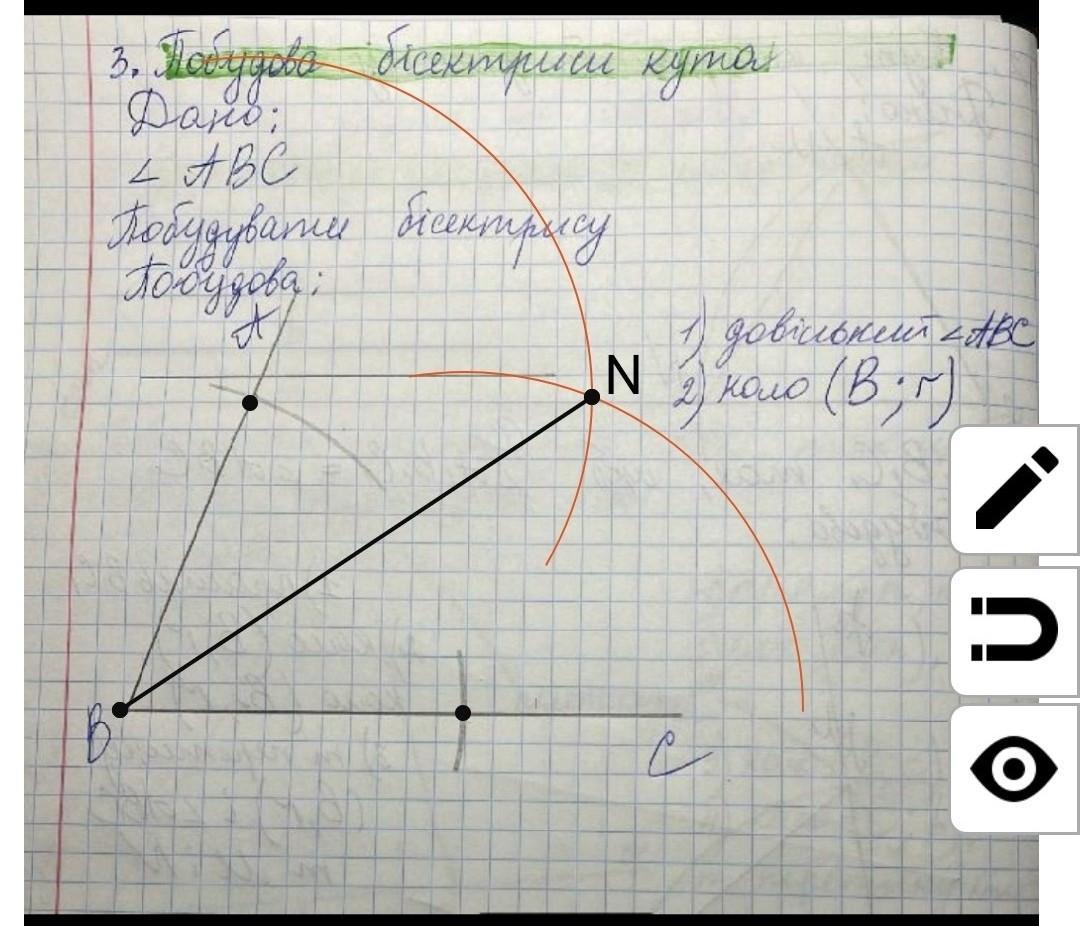 3. Побудова бісектриси кута
Дано:
∠ ABC
Побудувати бісектрису
Побудова:
A
1) довільний ∠ABC
2) коло (B; r)
N
B
C